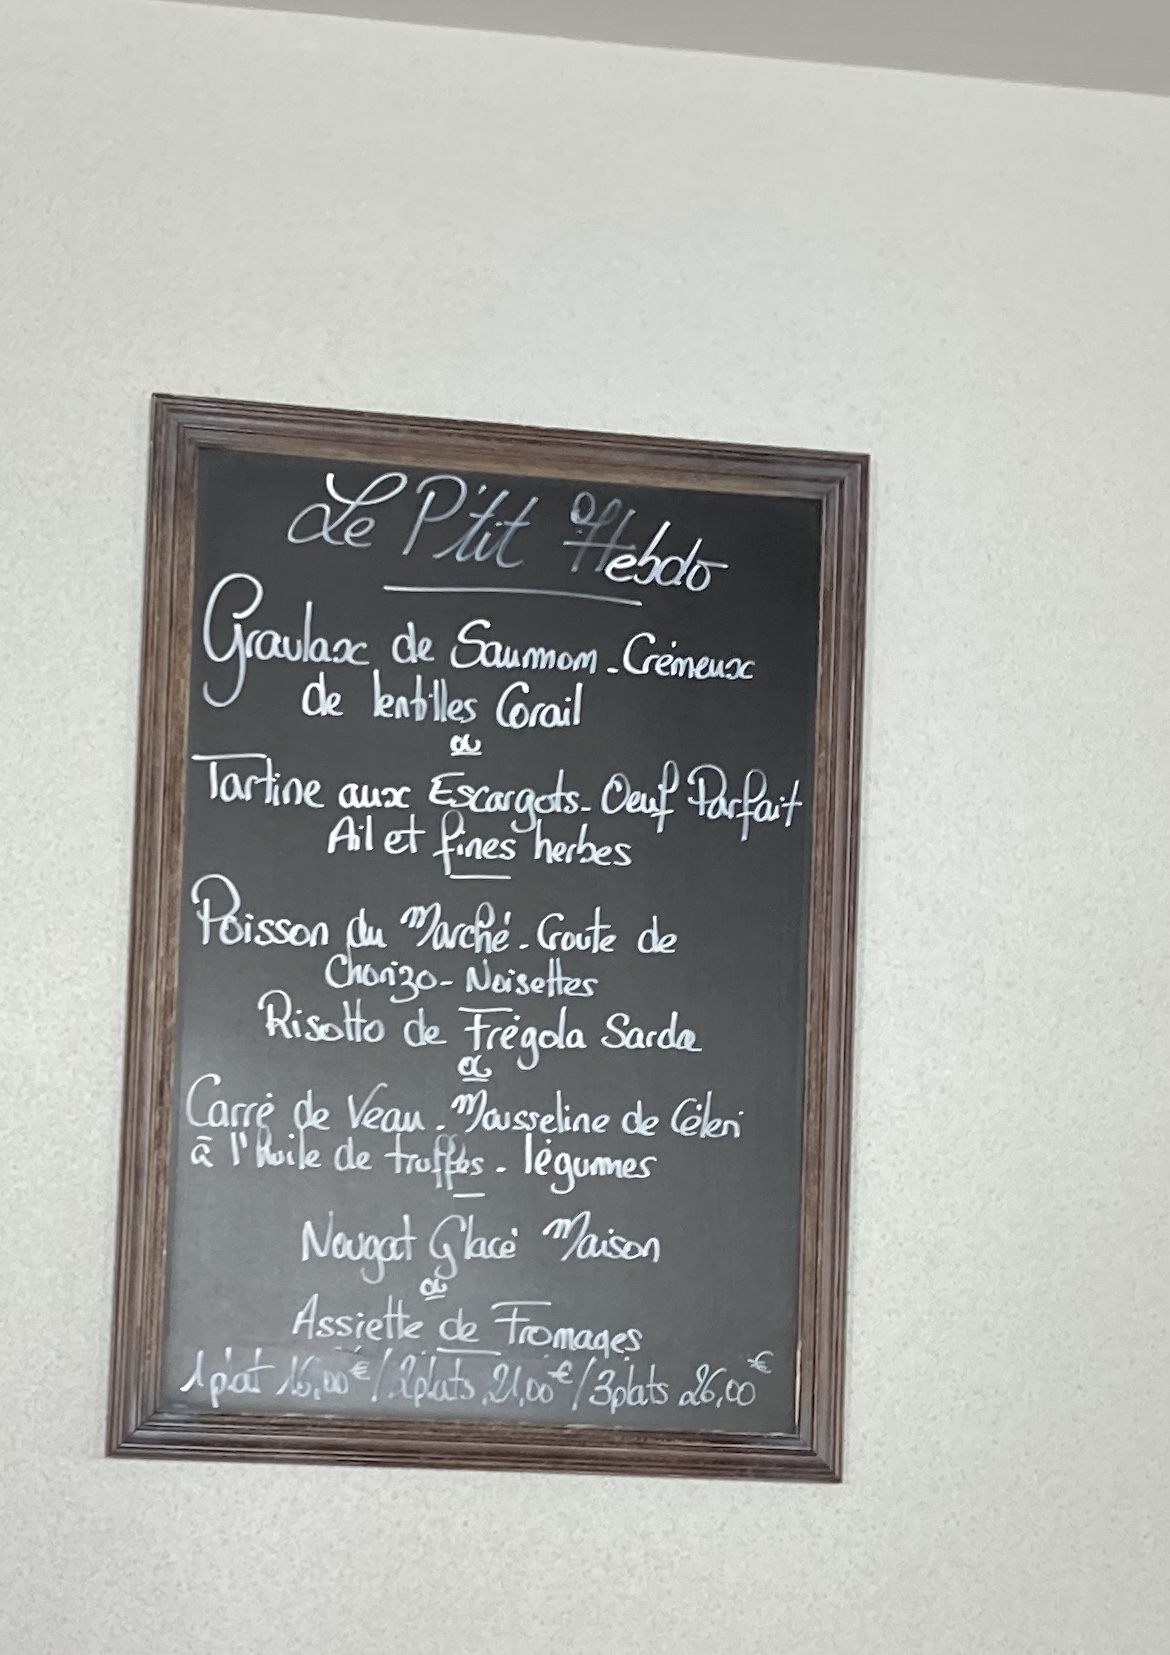 Le P'tit Hebdo
Gravlax de Saumon - Crémeux
de lentilles Corail
ou
Tartine aux Escargots - Oeuf Parfait
Ail et fines herbes
Poisson du Marché - Croute de
Chorizo - Noisettes
Risotto de Frégola Sarda
ou
Carré de Veau - Mousseline de Céleri
à l'huile de truffes - légumes
Nougat Glacé Maison
ou
Assiette de Fromages
1 plat 16,00€ / 2 plats 21,00€ / 3 plats 26,00€